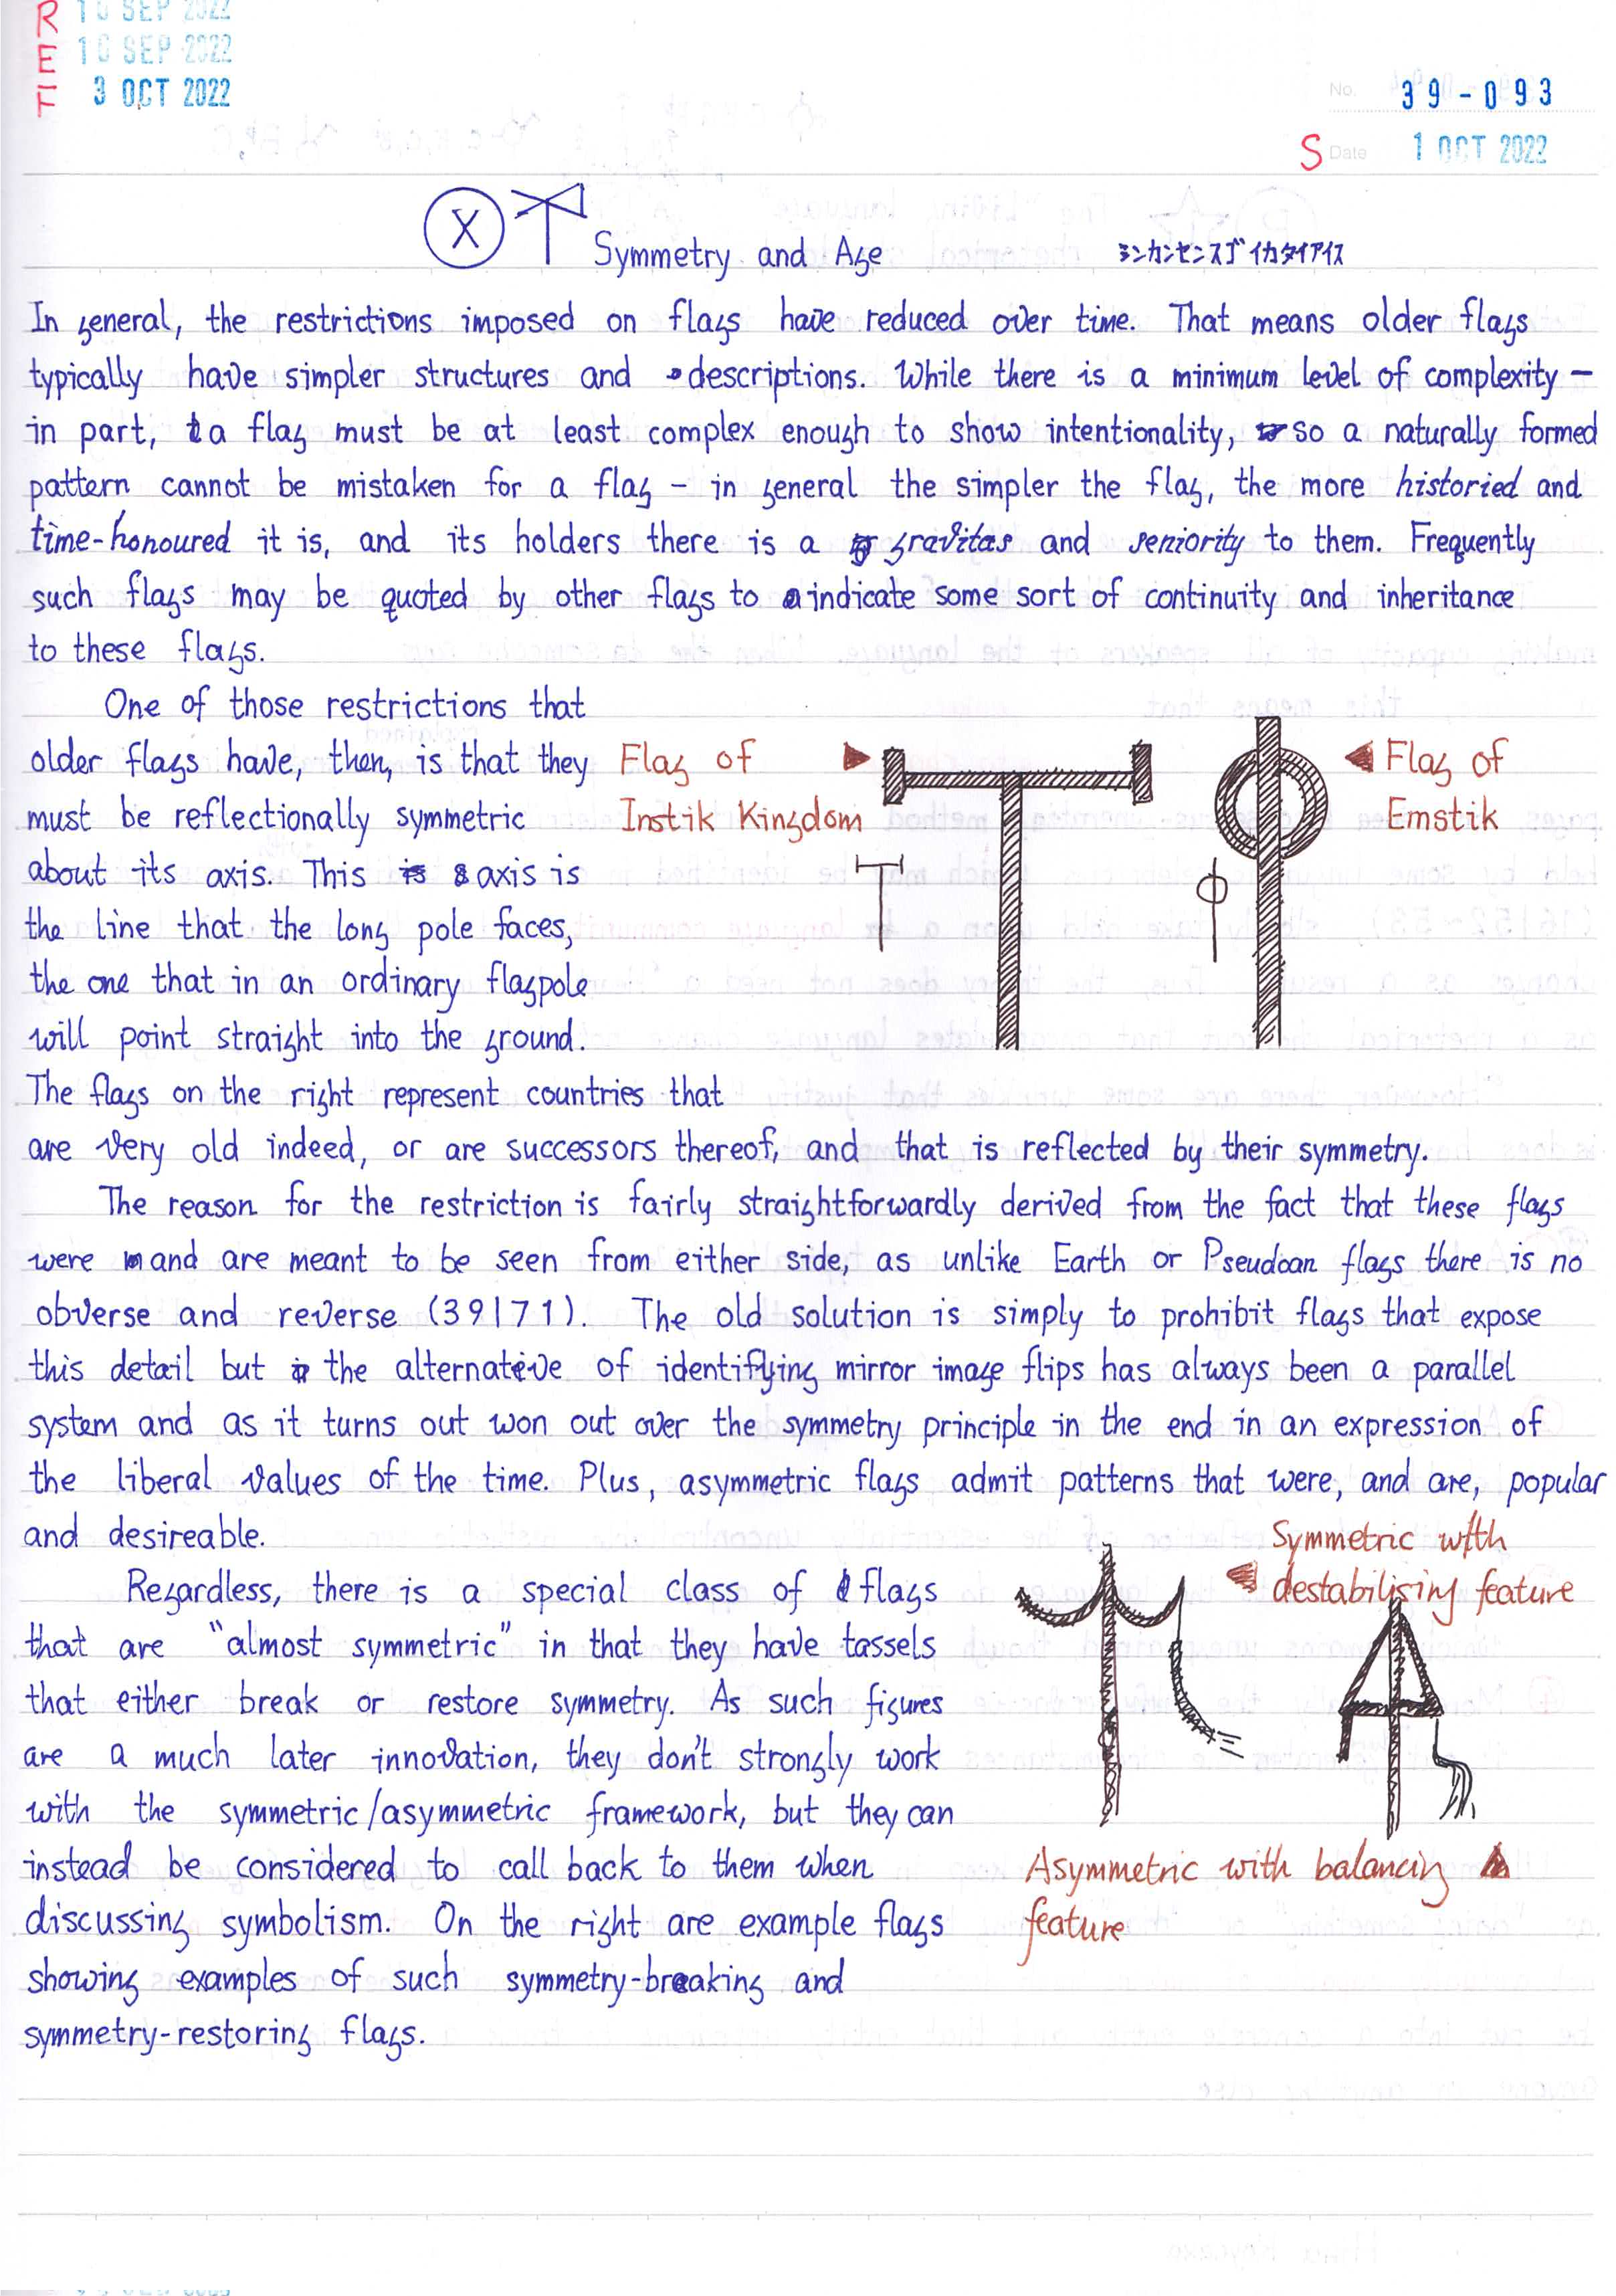 REF
10 SEP 2022
10 SEP 2022
3 OCT 2022
No. 39-093
S Date 1 OCT 2022
X Symmetry and Age シンカンセンスゴイカタイアイス
In general, the restrictions imposed on flags have reduced over time. That means older flags
typically have simpler structures and descriptions. While there is a minimum level of complexity –
in part, a flag must be at least complex enough to show intentionality, so a naturally formed
pattern cannot be mistaken for a flag – in general the simpler the flag, the more historied and
time-honoured it is, and its holders there is a gravitas and seniority to them. Frequently
such flags may be quoted by other flags to indicate some sort of continuity and inheritance
to these flags.
One of those restrictions that
older flags have, then, is that they
must be reflectionally symmetric
about its axis. This axis is
the line that the long pole faces,
the one that in an ordinary flagpole
will point straight into the ground.
The flags on the right represent countries that
are very old indeed, or are successors thereof, and that is reflected by their symmetry.
Flag of
Instik Kingdom
Flag of
Emstik
The reason for the restriction is fairly straightforwardly derived from the fact that these flags
were and are meant to be seen from either side, as unlike Earth or Pseudoan flags there is no
obverse and reverse (39|71). The old solution is simply to prohibit flags that expose
this detail but the alternative of identifying mirror image flips has always been a parallel
system and as it turns out won out over the symmetry principle in the end in an expression of
the liberal values of the time. Plus, asymmetric flags admit patterns that were, and are, popular
and desireable.
Regardless, there is a special class of flags
that are "almost symmetric" in that they have tassels
that either break or restore symmetry. As such figures
are a much later innovation, they don't strongly work
with the symmetric/asymmetric framework, but they can
instead be considered to call back to them when
discussing symbolism. On the right are example flags
showing examples of such symmetry-breaking and
symmetry-restoring flags.
Symmetric with
destabilising feature
Asymmetric with balancing
feature